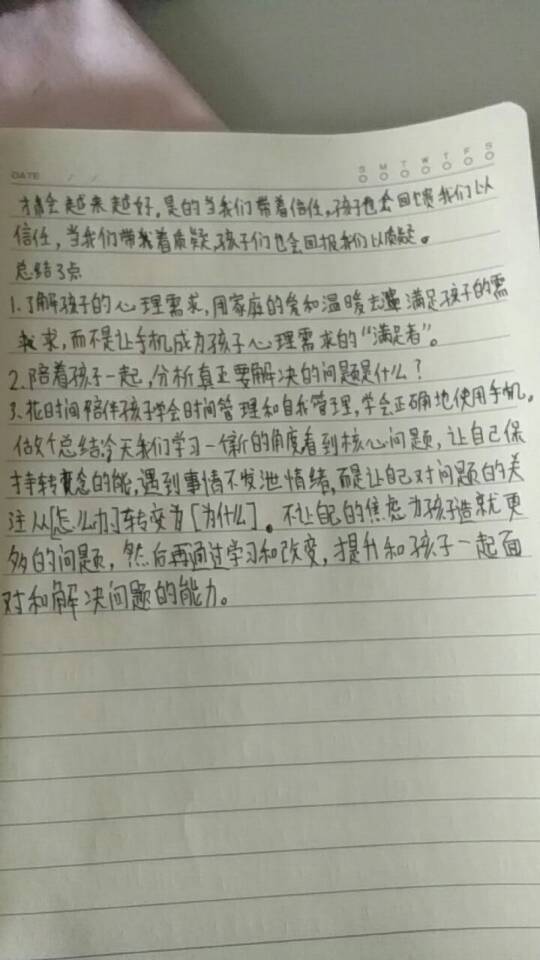 DATE / / S M T W T F S
才会越来越好。是的当我们带着信任,孩子也会回馈我们以
信任,当我们带着质疑,孩子们也会回报我们以质疑。
总结3点
1.了解孩子的心理需求,用家庭的爱和温暖去满足孩子的需
求,而不是让手机成为孩子心理需求的“满足者”。
2.陪着孩子一起,分析真正要解决的问题是什么?
3.花时间陪伴孩子学会时间管理和自我管理,学会正确地使用手机。
做个总结今天我们学习一个新的角度看到核心问题,让自己保
持转概念的能,遇到事情不发泄情绪,而是让自己对问题的关
注从[怎么办]转变为[为什么]。不让自己的焦虑为孩子造就更
多的问题,然后再通过学习和改变,提升和孩子一起面
对和解决问题的能力。